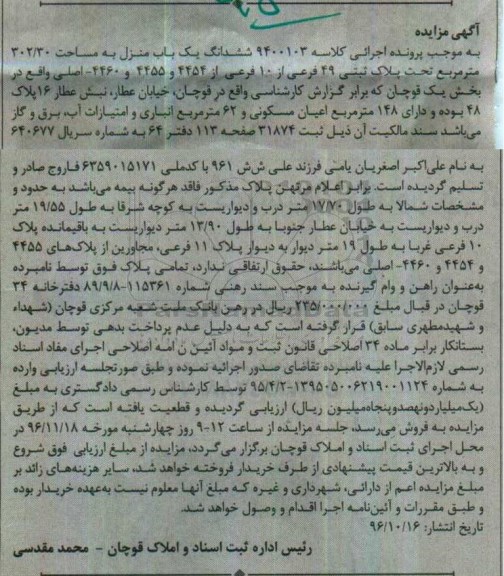 آگهی مزایده
به موجب پرونده اجرائی کلاسه ۹۴۰۰۱۰۳ ششدانگ یک باب منزل به مساحت ۳۰۲/۳۰
مترمربع تحت پلاک ثبتی ۴۹ فرعی از ۱۰ فرعی از ۴۴۵۴ و ۴۴۵۵ و ۴۴۶۰- اصلی واقع در
بخش یک قوچان که برابر گزارش کارشناسی واقع در قوچان، خیابان عطار، نبش عطار ۱۶ پلاک
۴۸ بوده و دارای ۱۴۸ مترمربع اعیان مسکونی و ۶۲ مترمربع انباری و امتیازات آب، برق و گاز
می‌باشد سند مالکیت آن ذیل ثبت ۳۱۸۷۴ صفحه ۱۱۳ دفتر ۶۴ به شماره سریال ۶۴۰۶۷۷
به نام علی‌اکبر اصغریان یامی فرزند علی ش‌ش ۹۶۱ با کدملی ۶۳۵۹۰۱۵۱۷۱ فاروج صادر و
تسلیم گردیده است. برابر اعلام مرتهن پلاک مذکور فاقد هرگونه بیمه می‌باشد به حدود و
مشخصات شمالا به طول ۱۷/۷۰ متر درب و دیواریست به کوچه شرقا به طول ۱۹/۵۵ متر
درب و دیواریست به خیابان عطار جنوبا به طول ۱۳/۹۰ متر دیواریست به باقیمانده پلاک
۱۰ فرعی غربا به طول ۱۹ متر دیوار به دیوار پلاک ۱۱ فرعی، مجاورین از پلاک‌های ۴۴۵۵
و ۴۴۵۴ و ۴۴۶۰- اصلی می‌باشند، حقوق ارتفاقی ندارد، تمامی پلاک فوق توسط نامبرده
به‌عنوان راهن و وام گیرنده به موجب سند رهنی شماره ۱۱۵۳۶۱-۸۹/۹/۸ دفترخانه ۳۴
قوچان در قبال مبلغ ۲۳۵/۰۰۰/۰۰۰ ریال در رهن بانک ملت شعبه مرکزی قوچان (شهداء
و شهیدمطهری سابق) قرار گرفته است که به دلیل عدم پرداخت بدهی توسط مدیون،
بستانکار برابر ماده ۳۴ اصلاحی قانون ثبت و مواد آئین نامه اصلاحی اجرای مفاد اسناد
رسمی لازم‌الاجرا علیه نامبرده تقاضای صدور اجرائیه نموده و طبق صورتجلسه ارزیابی وارده
به شماره ۱۳۹۵۰۵۰۰۶۲۱۹۰۰۱۱۲۴-۹۵/۴/۲ توسط کارشناس رسمی دادگستری به مبلغ
(یک‌میلیاردونهصدوپنجاه‌میلیون ریال) ارزیابی گردیده و قطعیت یافته است که از طریق
مزایده به فروش می‌رسد، جلسه مزایده از ساعت ۱۲-۹ روز چهارشنبه مورخه ۹۶/۱۱/۱۸ در
محل اجرای ثبت اسناد و املاک قوچان برگزار می‌گردد، مزایده از مبلغ ارزیابی فوق شروع
و به بالاترین قیمت پیشنهادی از طرف خریدار فروخته خواهد شد، سایر هزینه‌های زائد بر
مبلغ مزایده اعم از دارائی، شهرداری و غیره که مبلغ آنها معلوم نیست به‌عهده خریدار بوده
و طبق مقررات و آئین‌نامه اجرا اقدام و وصول خواهد شد.
تاریخ انتشار: ۹۶/۱۰/۱۶
رئیس اداره ثبت اسناد و املاک قوچان - محمد مقدسی